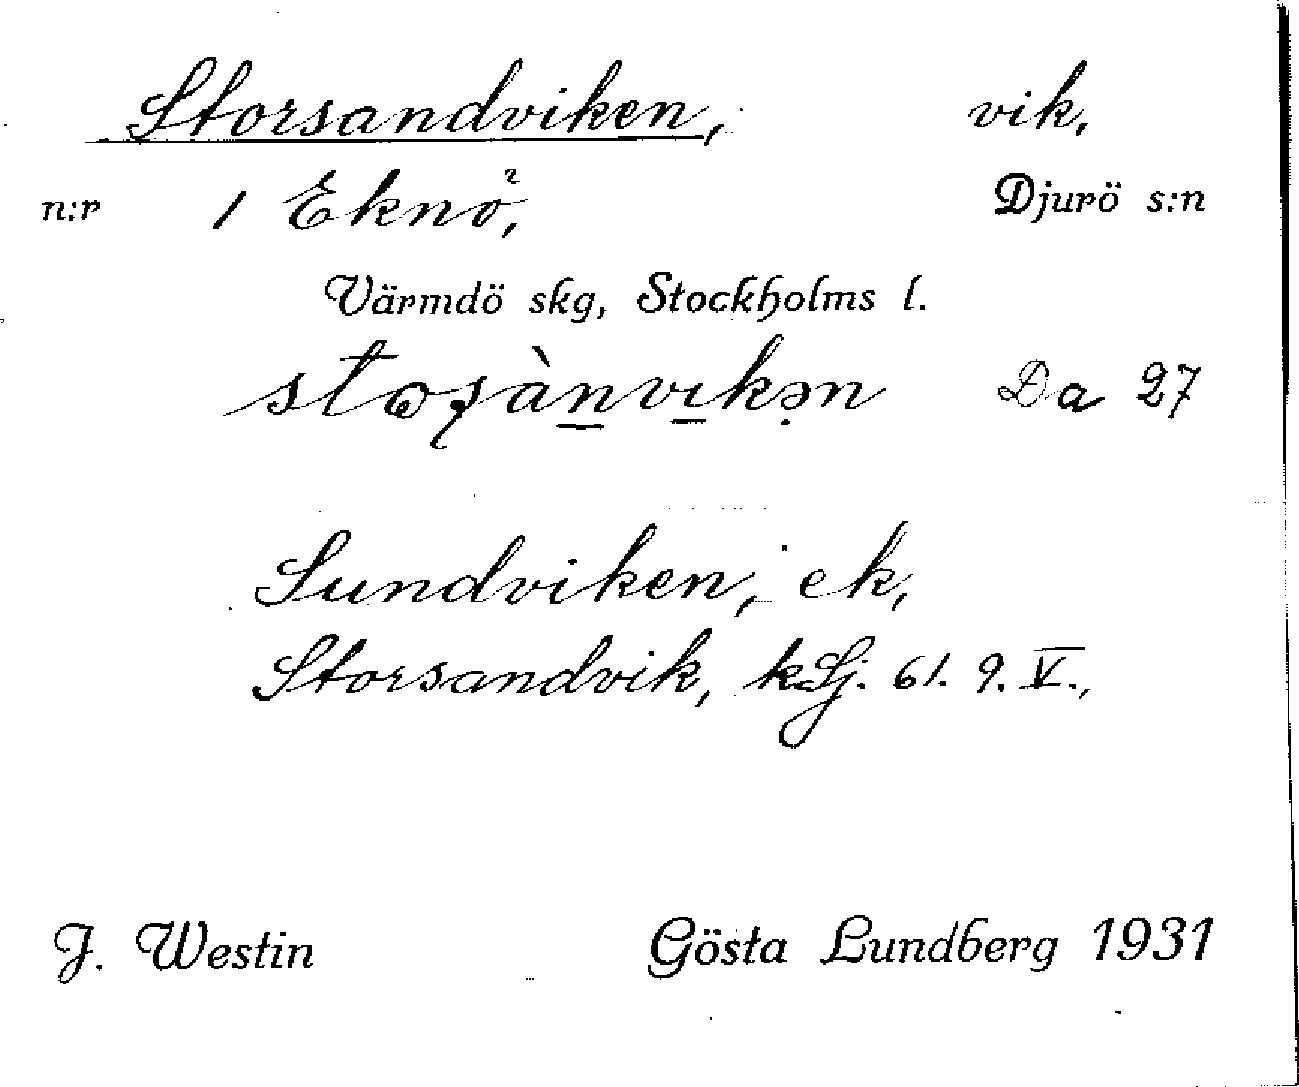 Storsandviken, vik,
n:r 1 Eknö, Djurö s:n
Värmdö skg, Stockholms l.
Da 27
Sundviken, ek,
Storsandvik, k Lj. 61. 9. V.,
J. Westin Gösta Lundberg 1931